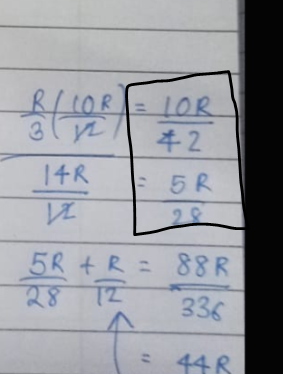 R/3 (10R/12) = 10R/42
14R/12 = 5R/28
5R/28 + R/12 = 88R/336
= 44R